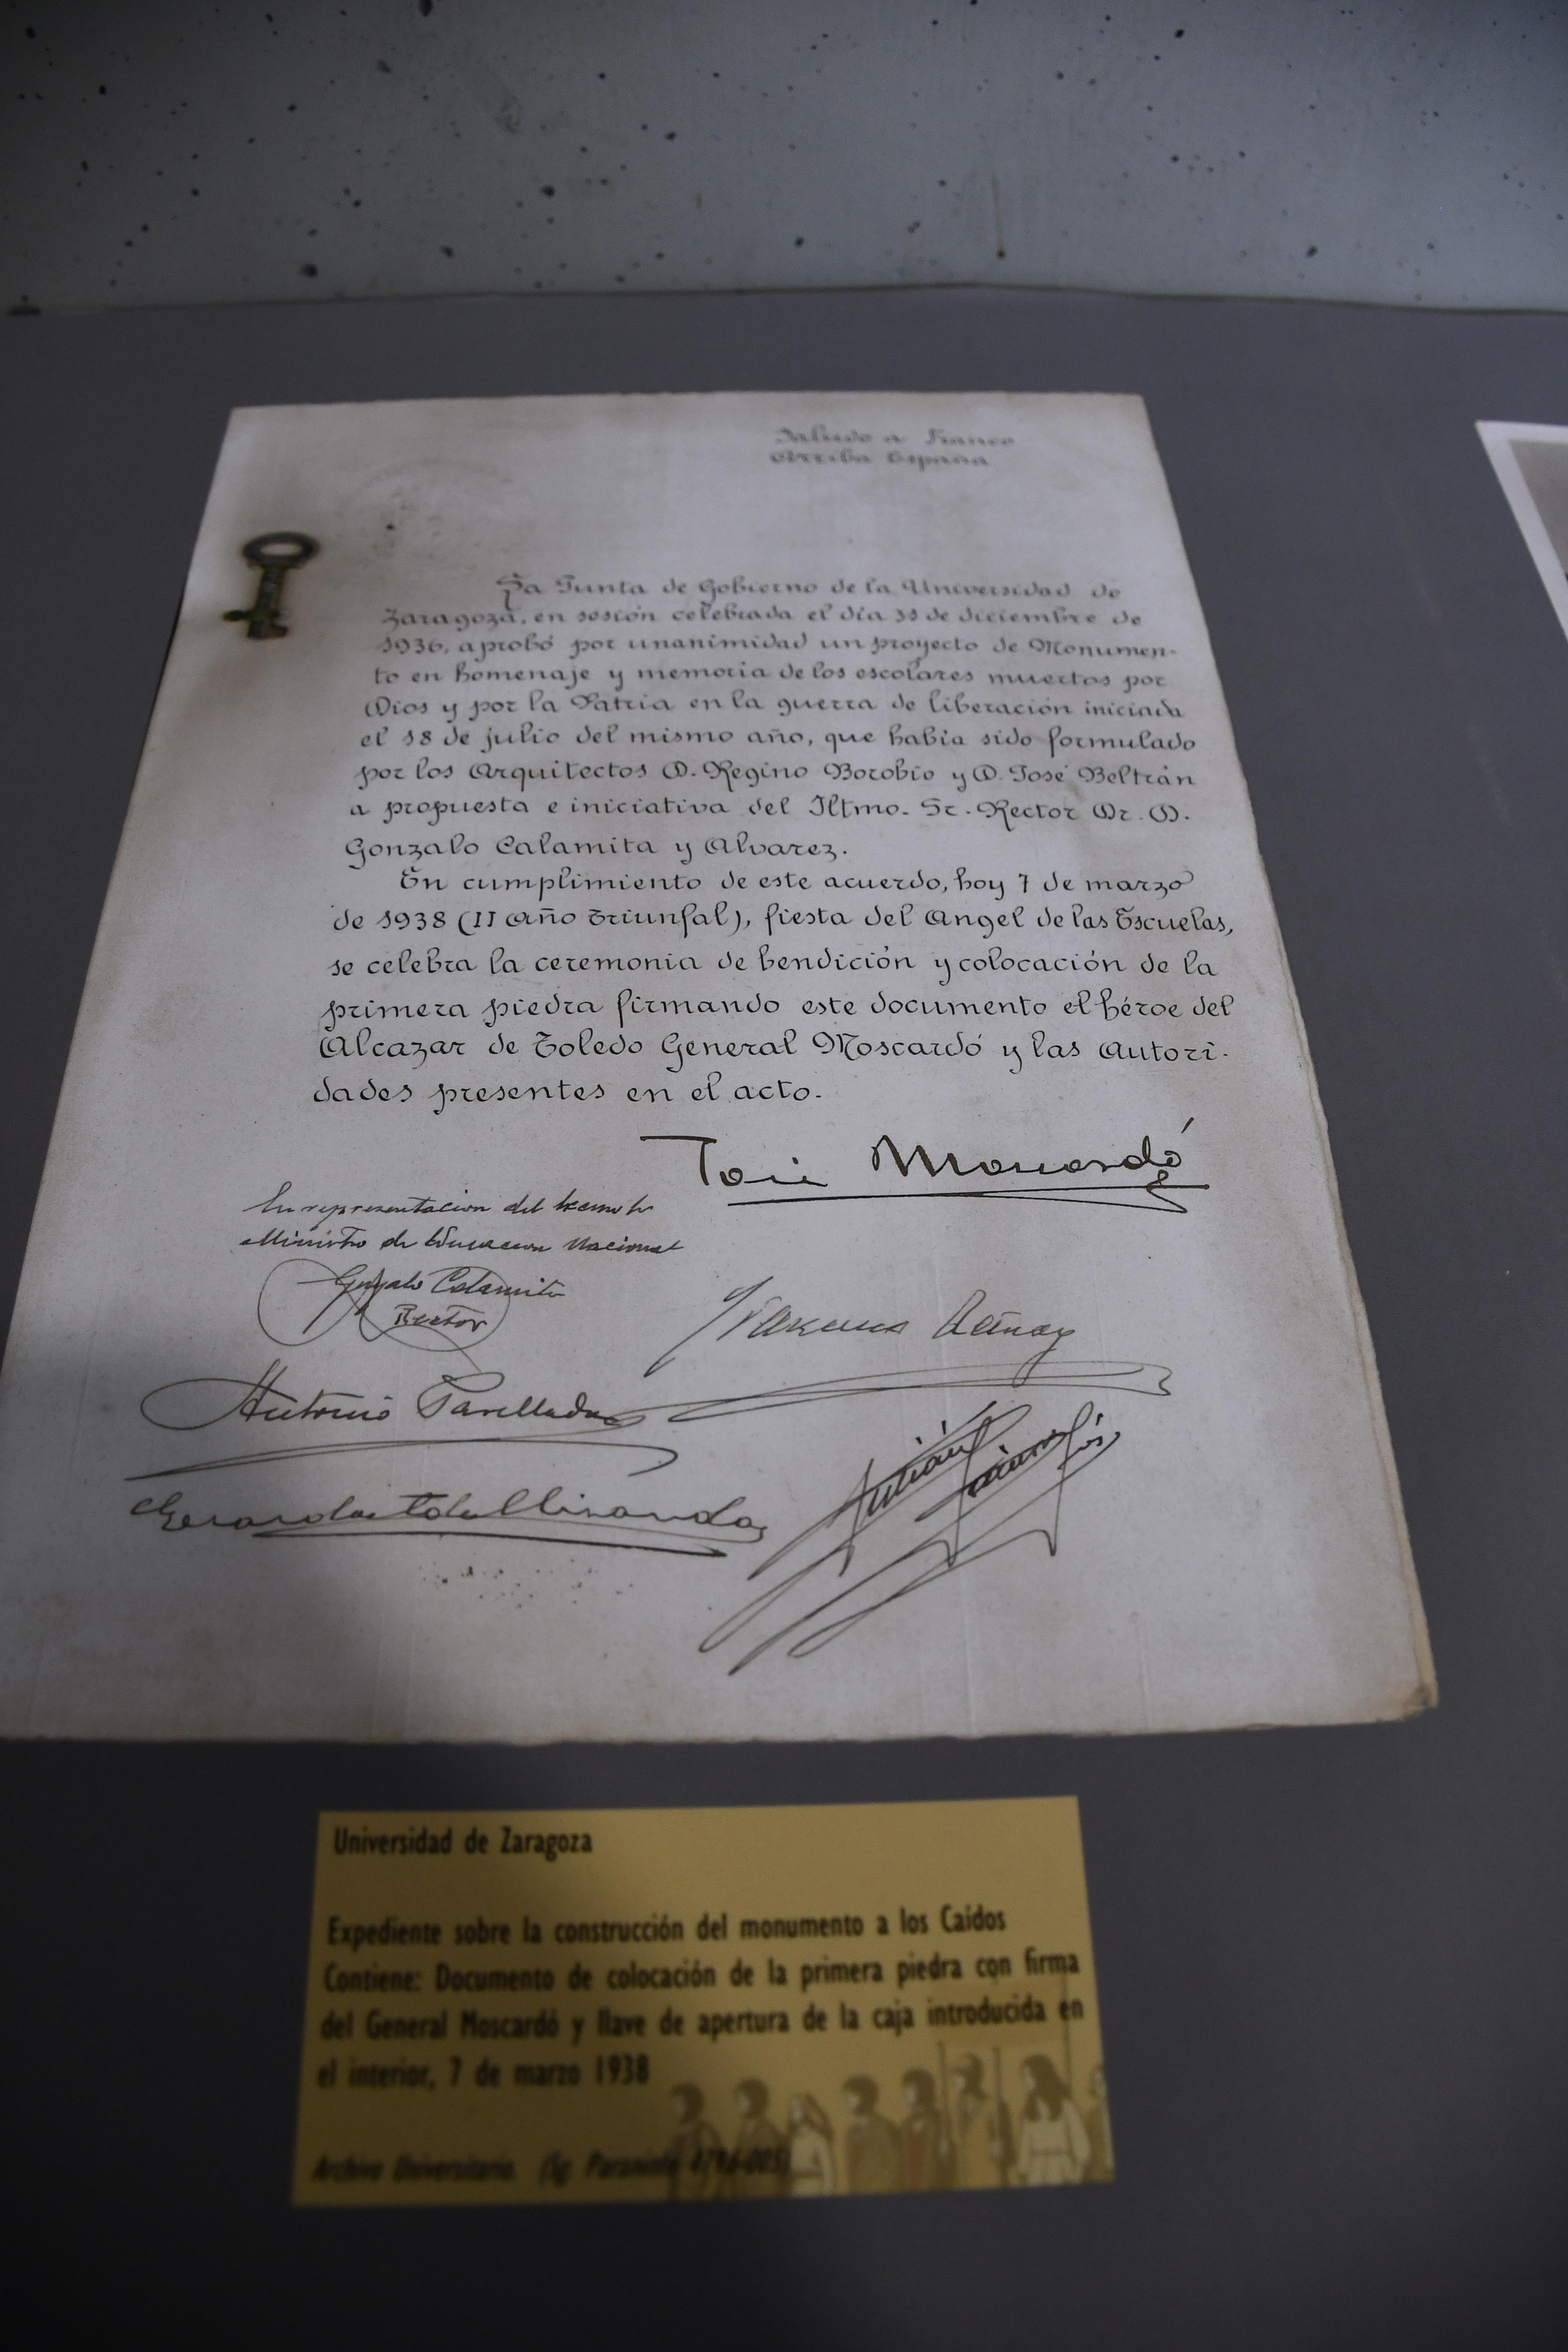 Saludo a Franco
Arriba España
La Junta de Gobierno de la Universidad de
Zaragoza, en sesión celebrada el día 31 de diciembre de
1936, aprobó por unanimidad un proyecto de Monumen-
to en homenaje y memoria de los escolares muertos por
Dios y por la Patria en la guerra de liberación iniciada
el 18 de julio del mismo año, que había sido formulado
por los Arquitectos D. Regino Borobio y D. José Beltrán
a propuesta e iniciativa del Iltmo. Sr. Rector Dr. D.
Gonzalo Calamita y Alvarez.
En cumplimiento de este acuerdo, hoy 7 de marzo
de 1938 (II Año Triunfal), fiesta del Angel de las Escuelas,
se celebra la ceremonia de bendición y colocación de la
primera piedra firmando este documento el héroe del
Alcazar de Toledo General Moscardó y las Autori-
dades presentes en el acto.
José Moscardó
En representacion del
Ministro de Educacion Nacional
Gonzalo Calamita
Rector
Antonio Parellada
Universidad de Zaragoza
Expediente sobre la construcción del monumento a los Caídos
Contiene: Documento de colocación de la primera piedra con firma
del General Moscardó y llave de apertura de la caja introducida en
el interior, 7 de marzo 1938
Archivo Universitario. (Sg. Paraninfo